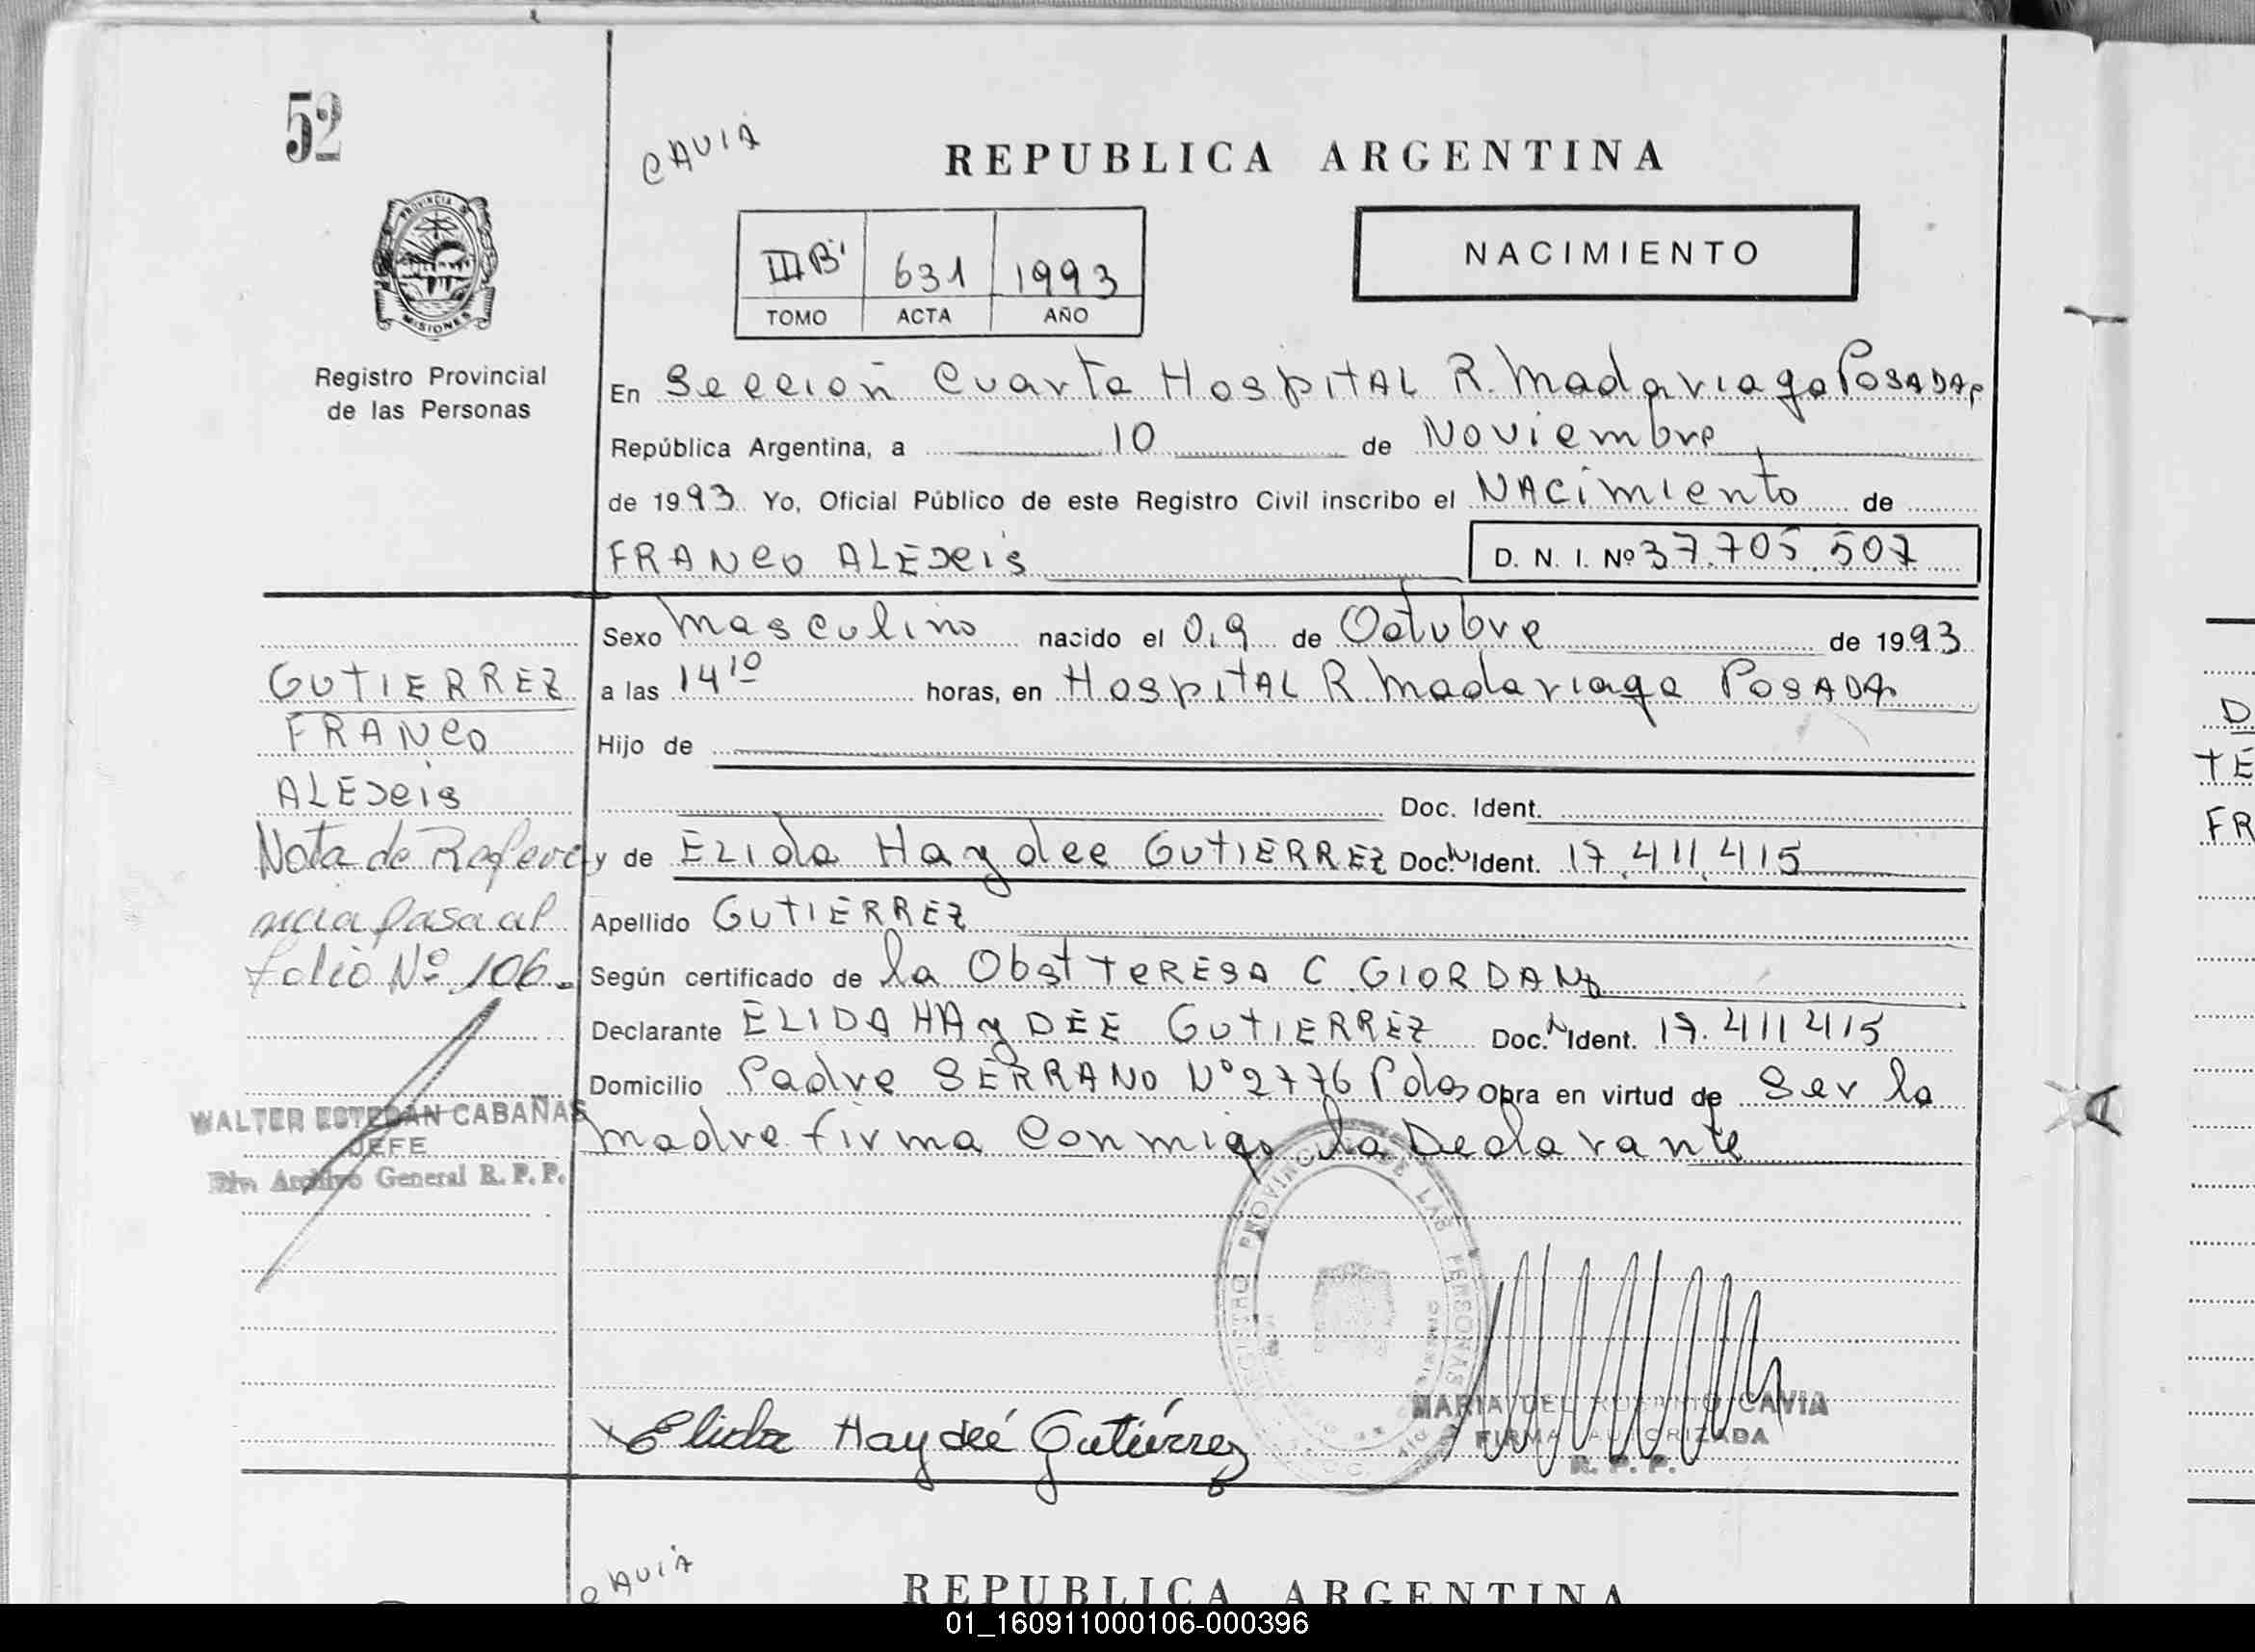 52
CAVIA
REPUBLICA ARGENTINA
PROVINCIA D
MISIONES
Registro Provincial
de las Personas
III B' 631 1993
TOMO ACTA AÑO
NACIMIENTO
En Sección Cuarta Hospital R. Madariaga Posadas
República Argentina, a 10 de Noviembre
de 1993. Yo, Oficial Público de este Registro Civil inscribo el Nacimiento de
FRANCO ALEXIS D. N. I. Nº 37.705.507
Sexo masculino nacido el 09 de Octubre de 1993
GUTIERREZ
FRANCO
ALEXIS
Nota de Refere
ncia pasa al
folio Nº 106.
a las 14 10 horas, en Hospital R. Madariaga Posadas
Hijo de
Doc. Ident.
y de Elida Haydee GUTIERREZ Doc. N Ident. 17.411.415
Apellido GUTIERREZ
Según certificado de la Obst TERESA C. GIORDANO
Declarante ELIDA HAyDEE GUTIERREZ Doc. N Ident. 17.411415
Domicilio Padre SERRANO Nº 2776 Pdas Obra en virtud de Ser la
madre. firma Conmigo la Declarante
WALTER ESTEBAN CABAÑAS
JEFE
Div. Archivo General R. P. P.
REGISTRO PROVINCIAL DE LAS PERSONAS
Elida Haydeé Gutiérrez
MARIA DEL ROSARIO CAVIA
FIRMA AUTORIZADA
R. P. P.
D
TE
FR
CAVIA
REPUBLICA ARGENTINA
01_160911000106-000396